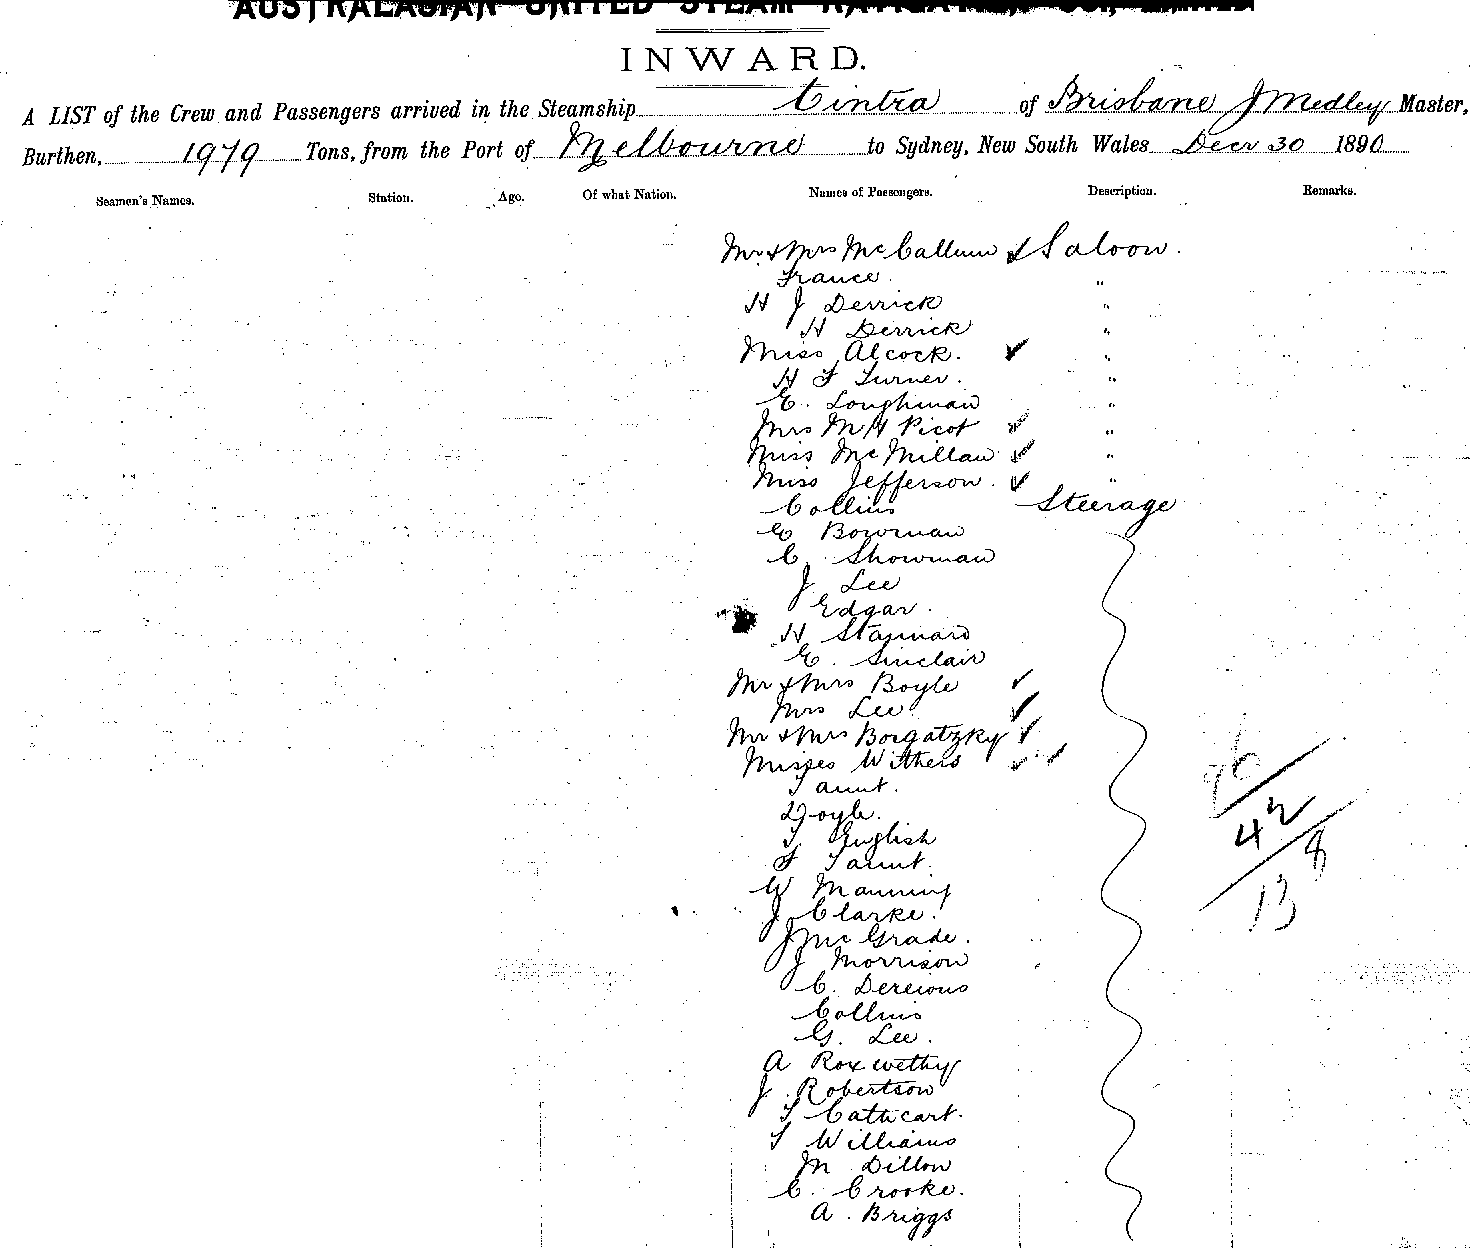 AUSTRALASIAN UNITED STEAM NAVIGATION CO., LIMITED
INWARD.
A LIST of the Crew and Passengers arrived in the Steamship Cintra of Brisbane J Medley Master,
Burthen, 1979 Tons, from the Port of Melbourne to Sydney, New South Wales Decr 30 1890
Seamen's Names. Station. Age. Of what Nation. Names of Passengers. Description. Remarks.
Mr & Mrs McCallum ✓ Saloon.
France "
H J Derrick "
H Derrick "
Miss Alcock. ✓ "
H F Turner. "
E. Loughman "
Mrs M H Picot ✓ "
Miss McMillan ✓ "
Miss Jefferson. ✓ "
Collins Steerage
E Bowman
C. Showman
J Lee
Edgar.
H Stannard
E. Sinclair
Mr & Mrs Boyle ✓
Mrs Lee ✓
Mr & Mrs Borgatzky ✓
Misses Withers ✓ ✓
Taunt.
Doyle.
T English
F Taunt.
W Manning
J Clarke.
J McGrade.
J Morrison
C.
Collins
G. Lee.
A Roxwethy
J Robertson
T Cathcart.
T Williams
M Dillon
C. Crooke.
A. Briggs
42
8
13